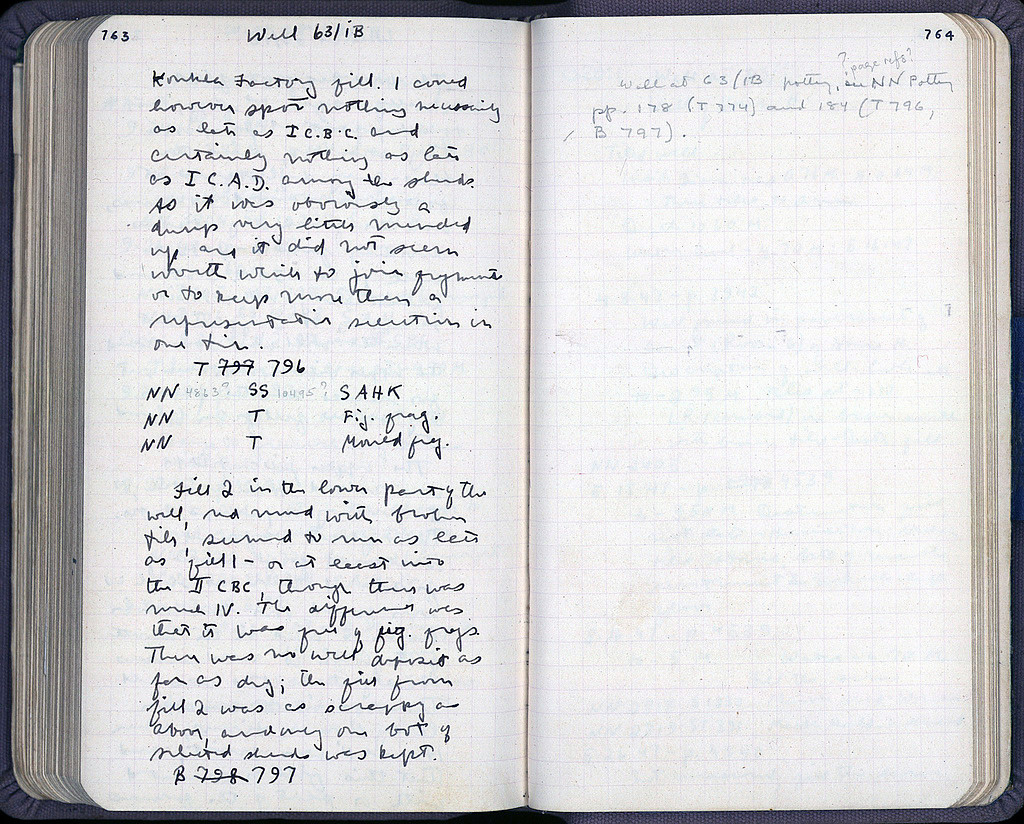 763
Well 63/iB
Koukla Factory fill. I could
however spot nothing necessarily
as late as I C.B.C. and
certainly nothing as late
as I C.A.D. among the sherds.
As it was obviously a
dump very little mended
up and it did not seem
worth while to join fragments
or to keep more than a
representative selection in
one tin.
T 797 796
NN 4863? SS 10495? SAHK
NN T Fig. frag.
NN T Mould frag.
Fill 2 in the lower part of the
well, red mud with broken
tile, seemed to run as late
as fill 1 – or at least into
the II CBC, though there was
much IV. The difference was
that it was full of fig. frags.
There was no well deposit as
far as dug; the fill from
fill 2 was as scrappy as
above, and only one box of
selected sherds was kept.
B 798 797
764
? page refs?
Well at 63/iB pottery, see NN Pottery
pp. 178 (T 774) and 184 (T 796,
B 797).